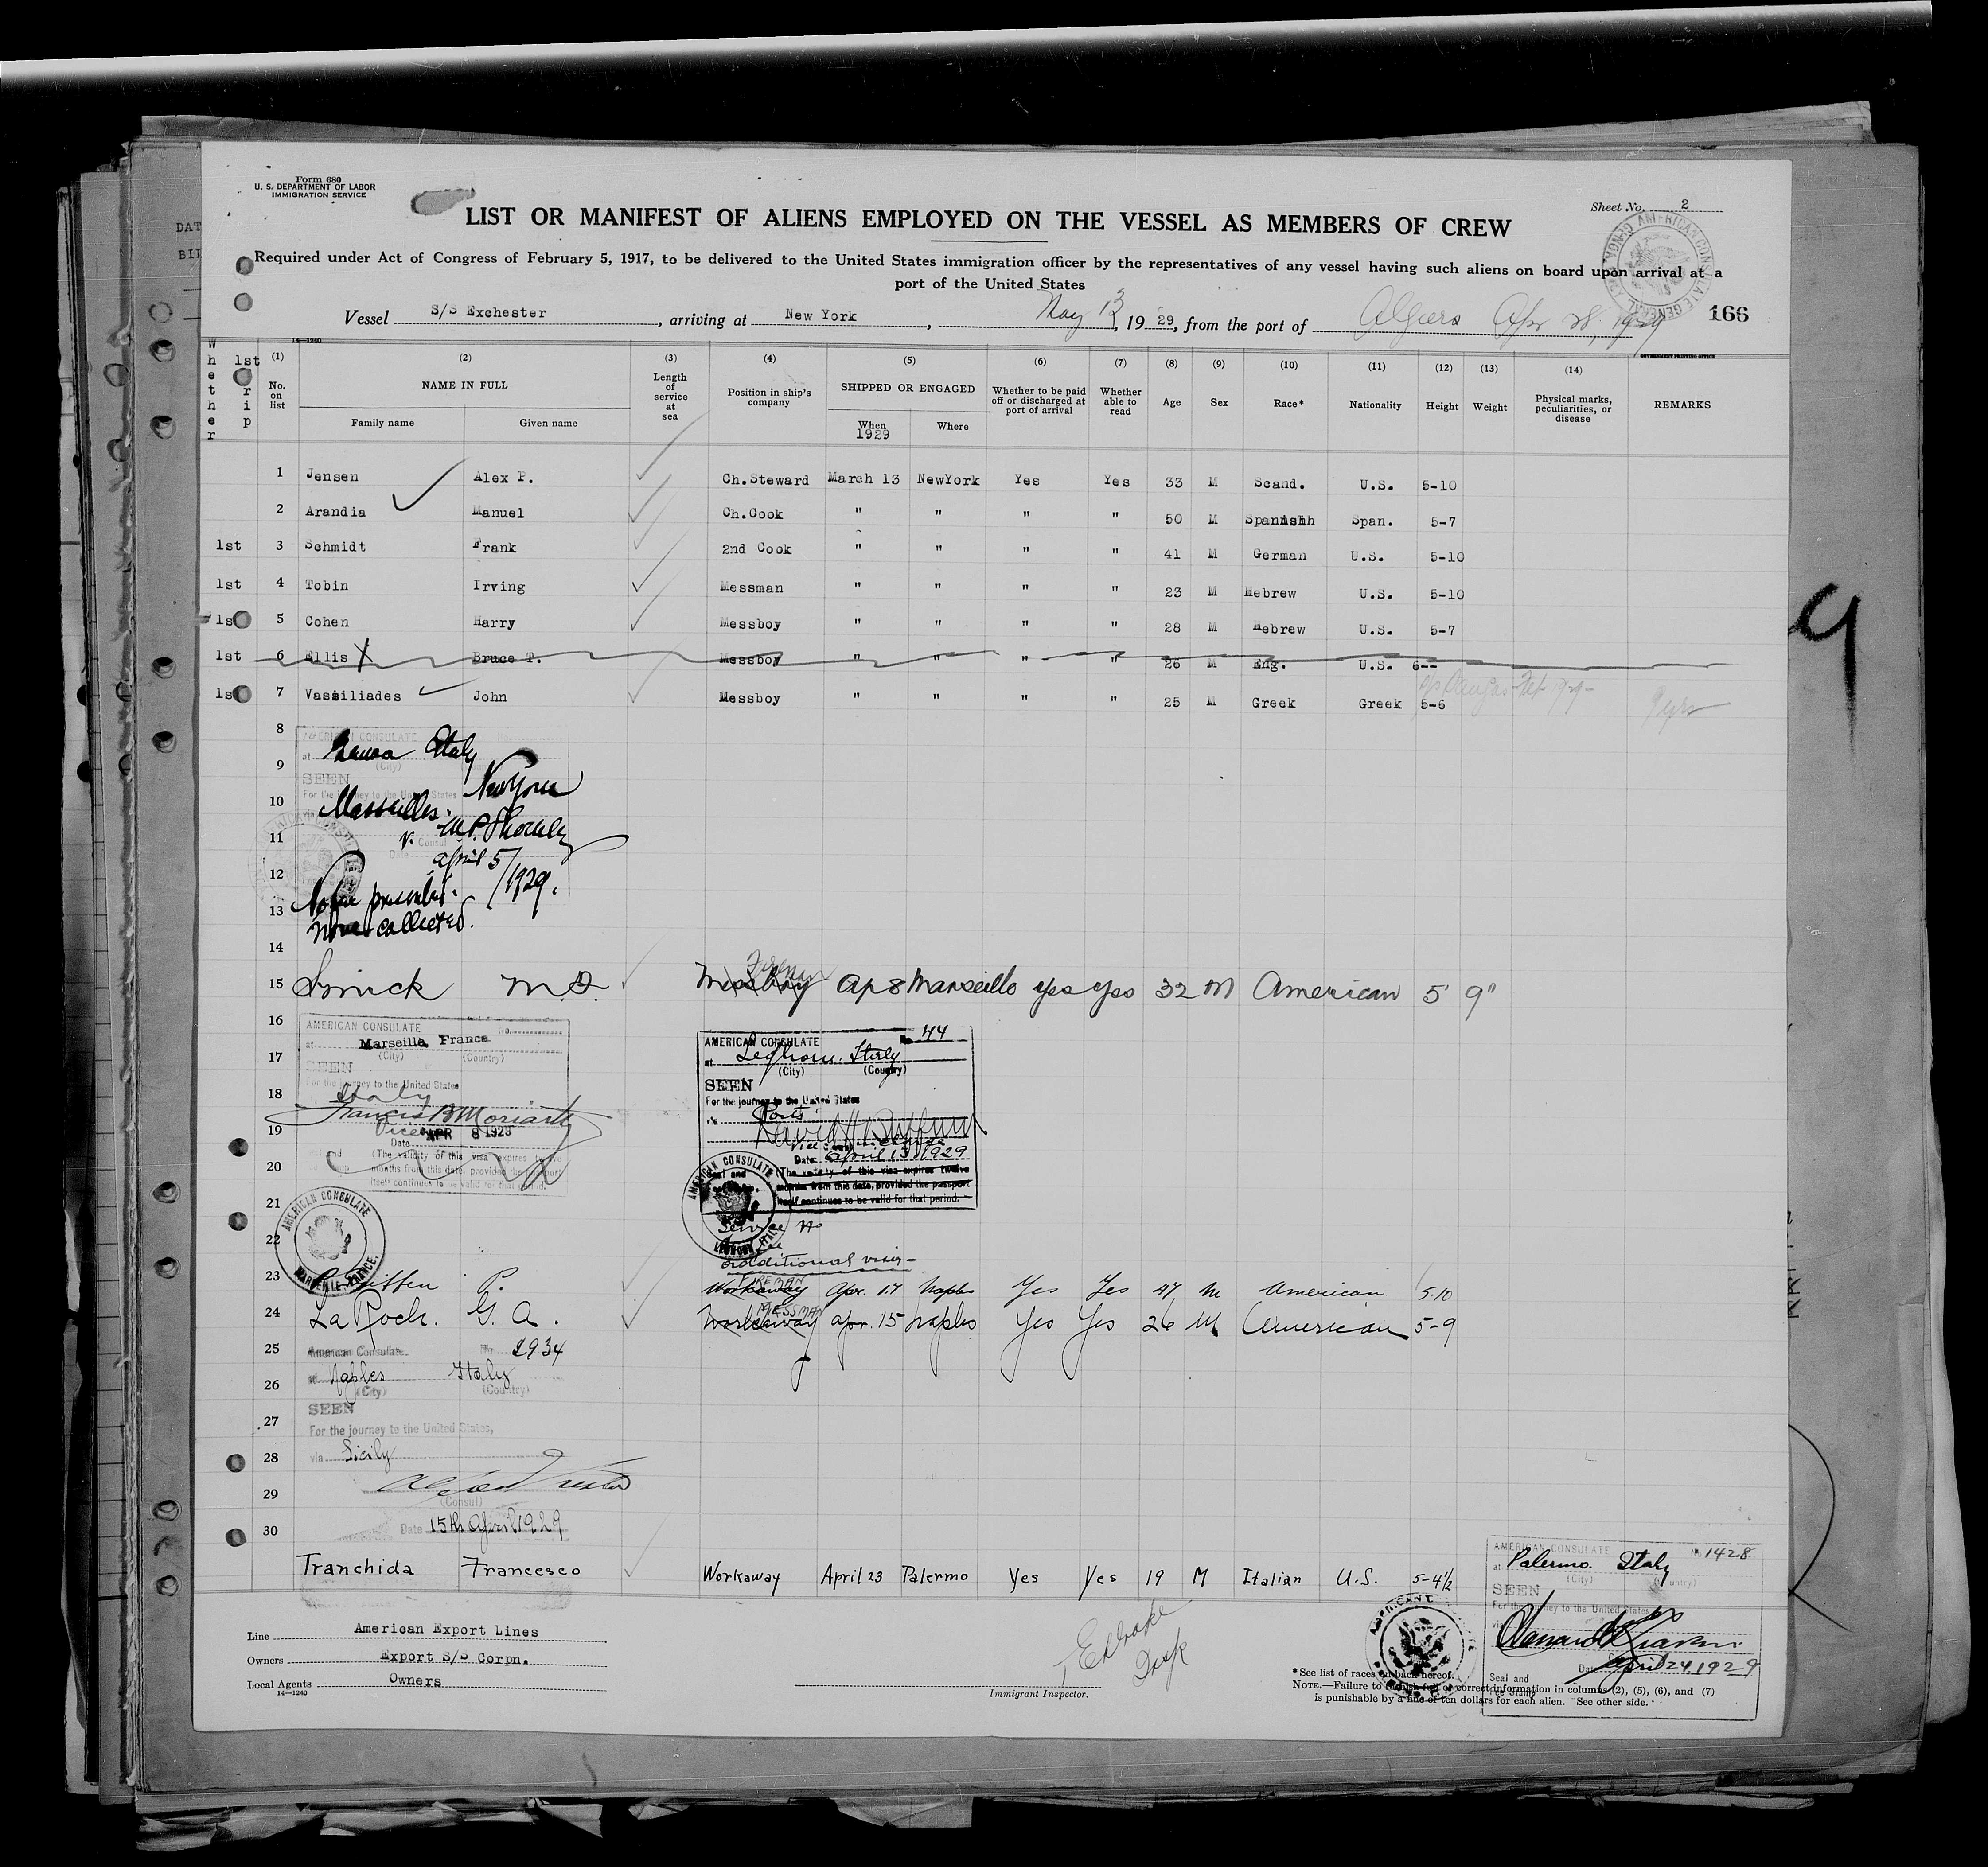 Form 680
U. S. DEPARTMENT OF LABOR
IMMIGRATION SERVICE
Sheet No. 2
LIST OR MANIFEST OF ALIENS EMPLOYED ON THE VESSEL AS MEMBERS OF CREW
Required under Act of Congress of February 5, 1917, to be delivered to the United States immigration officer by the representatives of any vessel having such aliens on board upon arrival at a
port of the United States
166
Vessel S/S Exchester, arriving at New York, May 13, 1929, from the port of Algiers Apr 28, 1929
14—1240
GOVERNMENT PRINTING OFFICE
Whether 1st Trip (1) No. on list (2) NAME IN FULL Family name Given name (3) Length of service at sea (4) Position in ship's company (5) SHIPPED OR ENGAGED When 1929 Where (6) Whether to be paid off or discharged at port of arrival (7) Whether able to read (8) Age (9) Sex (10) Race* (11) Nationality (12) Height (13) Weight (14) Physical marks, peculiarities, or disease REMARKS
1 Jensen Alex P. Ch.Steward March 13 NewYork Yes Yes 33 M Scand. U.S. 5-10
2 Arandia Manuel Ch.Cook " " " " 50 M Spanishh Span. 5-7
1st 3 Schmidt Frank 2nd Cook " " " " 41 M German U.S. 5-10
1st 4 Tobin Irving Messman " " " " 23 M Hebrew U.S. 5-10
1s 5 Cohen Harry Messboy " " " " 28 M Hebrew U.S. 5-7
1st 6 Ellis X Bruce T. Messboy " " " " 26 M Eng. U.S. 6--
1s 7 Vassiliades John Messboy " " " " 25 M Greek Greek 5-6
8
AMERICAN CONSULATE
at Genoa Italy
(City)
9
SEEN
For the journey to the United States
New York
10
Marseilles.
11
V. Consul
12
April 5/1929.
13
None collected.
14
15 M. Messboy Fireman Ap 8 Marseille yes yes 32 M American 5 9"
16
AMERICAN CONSULATE No.
at Marseille, France
(City) (Country)
17
SEEN
For the journey to the United States
18
Italy
Francis B Moriarty
19
Vice
Date APR 8 1929
20
(The validity of this visa expires twelve
months from this date, provided the passport
itself continues to be valid for that period.
21
AMERICAN CONSULATE
MARSEILLE, FRANCE.
22
AMERICAN CONSULATE No. 44
at Leghorn. Italy
(City) (Country)
SEEN
For the journey to the United States
via Ports
Date April 13 1929
(The validity of this visa expires twelve
months from this date, provided the passport
itself continues to be valid for that period.
AMERICAN CONSULATE
LEGHORN, ITALY
Service No
additional visa
23 Griffen P. Workaway FIREMAN Apr. 17 Naples Yes Yes 47 M American 5.10
24 La Roch. G. A. Workaway MESSMAN Apr. 15 Naples Yes Yes 26 M American 5-9
25
American Consulate No. 2934
at Naples Italy
(City) (Country)
26
SEEN
27
For the journey to the United States,
28
via Sicily
29
(Consul)
30
Date 15th April 1929
Tranchida Francesco Workaway April 23 Palermo Yes Yes 19 M Italian U.S. 5-4½
AMERICAN CONSULATE No 1428
at Palermo. Italy
(City) (Country)
SEEN
For the journey to the United States
via
Date April 24 1929
Seal and
Fee Stamp
Line American Export Lines
Owners Export S/S Corpn.
Local Agents Owners
14—1240
Insp
Immigrant Inspector.
*See list of races on back hereof.
NOTE.—Failure to furnish full or correct information in columns (2), (5), (6), and (7)
is punishable by a fine of ten dollars for each alien. See other side.
9